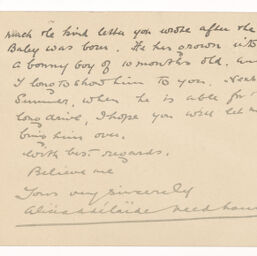 reach the kind letter you wrote after the
Baby was born. He has grown into
a bonny boy of 10 months old, and
I long to show him to you. Next
Summer, when he is able for
long drive, I hope you will let me
bring him over.
With best regards.
Believe me
Yours very sincerely
Alicia Adélaïde Needham